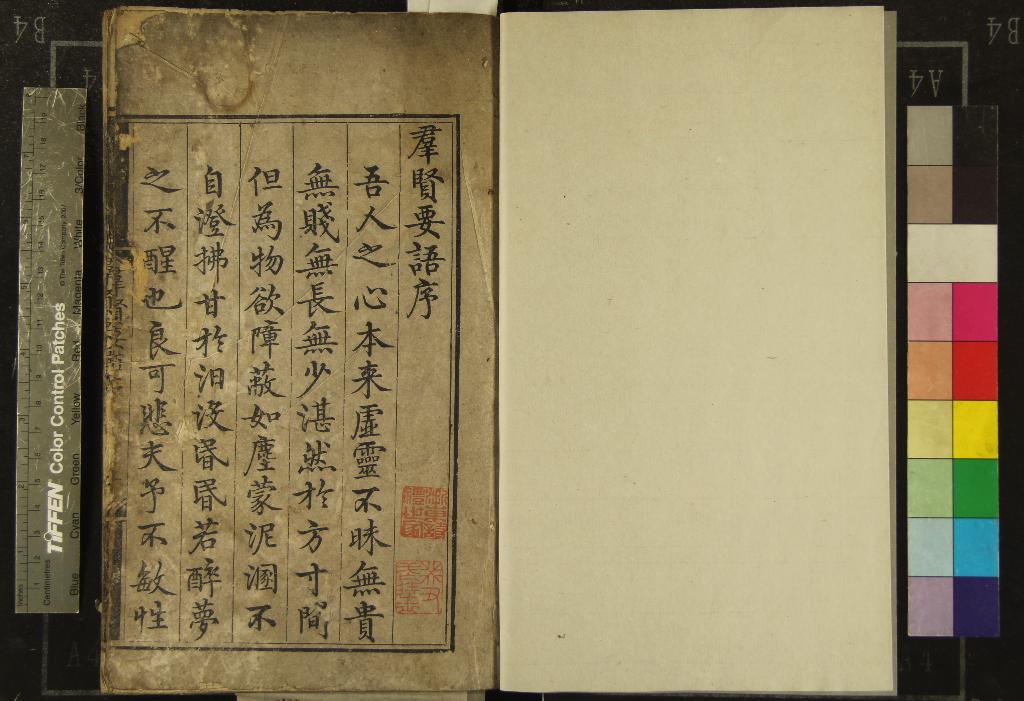 羣賢要語序
吾人之心本来虛靈不昧無貴
無賤無長無少湛然於方寸間
但為物欲障蔽如塵蒙泥溷不
自澄拂甘於汩没昬昬若醉夢
之不醒也良可悲夫予不敏性
B4
A4
B4
A4
TIFFEN Color Control Patches
© The Tiffen Company, 2007
Inches
Centimetres
Blue
Cyan
Green
Yellow
Red
Magenta
White
3/Color
Black